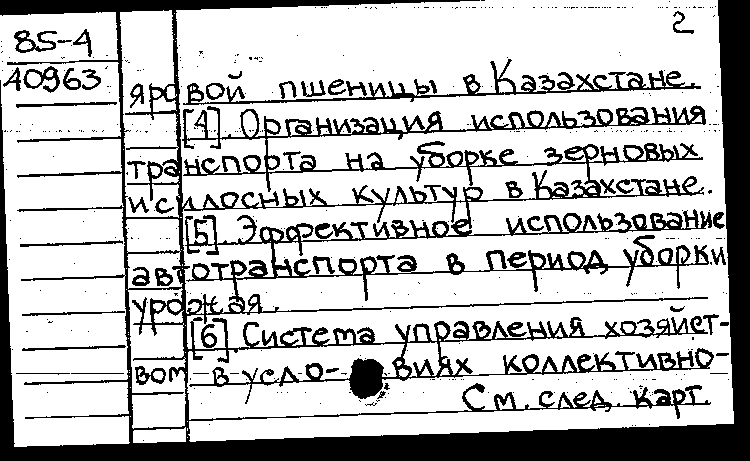 2
85-4
40963
яровой пшеницы в Казахстане.
[4]. Организация использования
транспорта на уборке зерновых
и силосных культур в Казахстане.
[5]. Эффективное использование
автотранспорта в период уборки
урожая.
[6]. Система управления хозяйст-
вом в усло- виях коллективно-
См. след. карт.